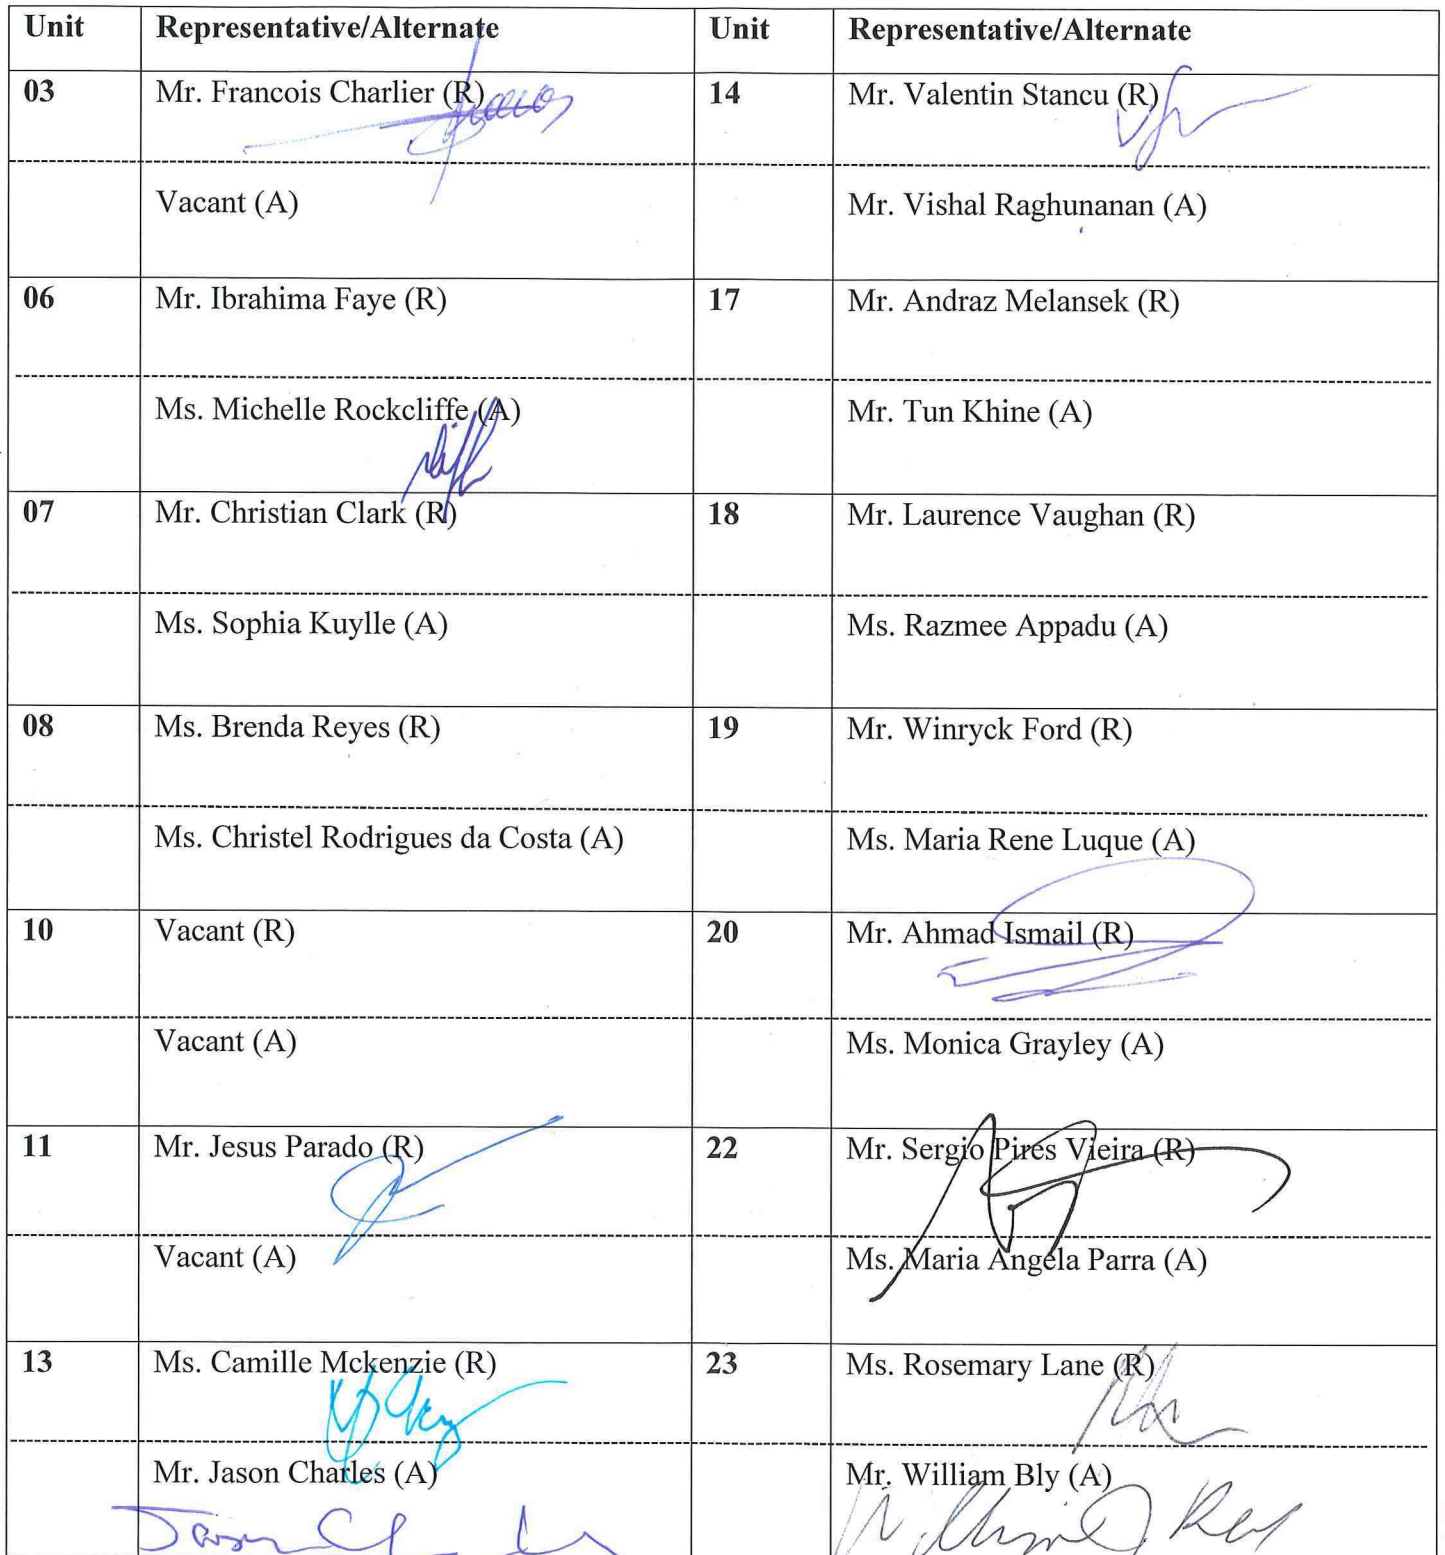 Unit Representative/Alternate Unit Representative/Alternate
03 Mr. Francois Charlier (R) 14 Mr. Valentin Stancu (R)
Vacant (A) Mr. Vishal Raghunanan (A)
06 Mr. Ibrahima Faye (R) 17 Mr. Andraz Melansek (R)
Ms. Michelle Rockcliffe (A) Mr. Tun Khine (A)
07 Mr. Christian Clark (R) 18 Mr. Laurence Vaughan (R)
Ms. Sophia Kuylle (A) Ms. Razmee Appadu (A)
08 Ms. Brenda Reyes (R) 19 Mr. Winryck Ford (R)
Ms. Christel Rodrigues da Costa (A) Ms. Maria Rene Luque (A)
10 Vacant (R) 20 Mr. Ahmad Ismail (R)
Vacant (A) Ms. Monica Grayley (A)
11 Mr. Jesus Parado (R) 22 Mr. Sergio Pires Vieira (R)
Vacant (A) Ms. Maria Angela Parra (A)
13 Ms. Camille Mckenzie (R) 23 Ms. Rosemary Lane (R)
Mr. Jason Charles (A) Mr. William Bly (A)